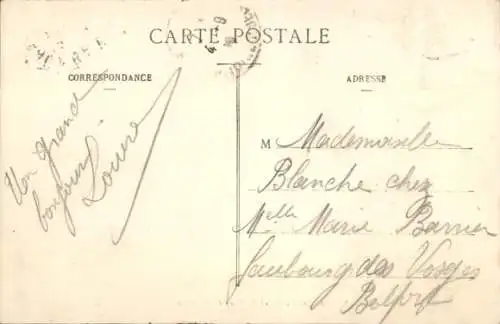 CARTE POSTALE
CORRESPONDANCE
ADRESSE
Un grand
bonjour
Louise
M Mademoiselle
Blanche chez
Melle Marie Barrier
Faubourg des Vosges
Belfort